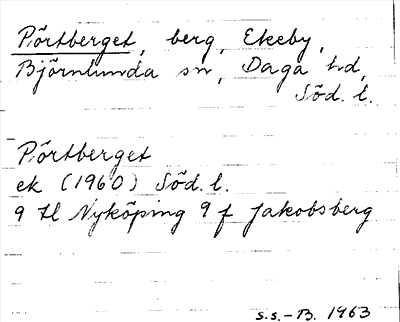 Pörtberget, berg, Ekeby,
Björnlunda sn, Daga hd,
Söd. l.
Pörtberget
ek (1960) Söd. l.
9 H Nyköping 9 f Jakobsberg
S.S.-B. 1963